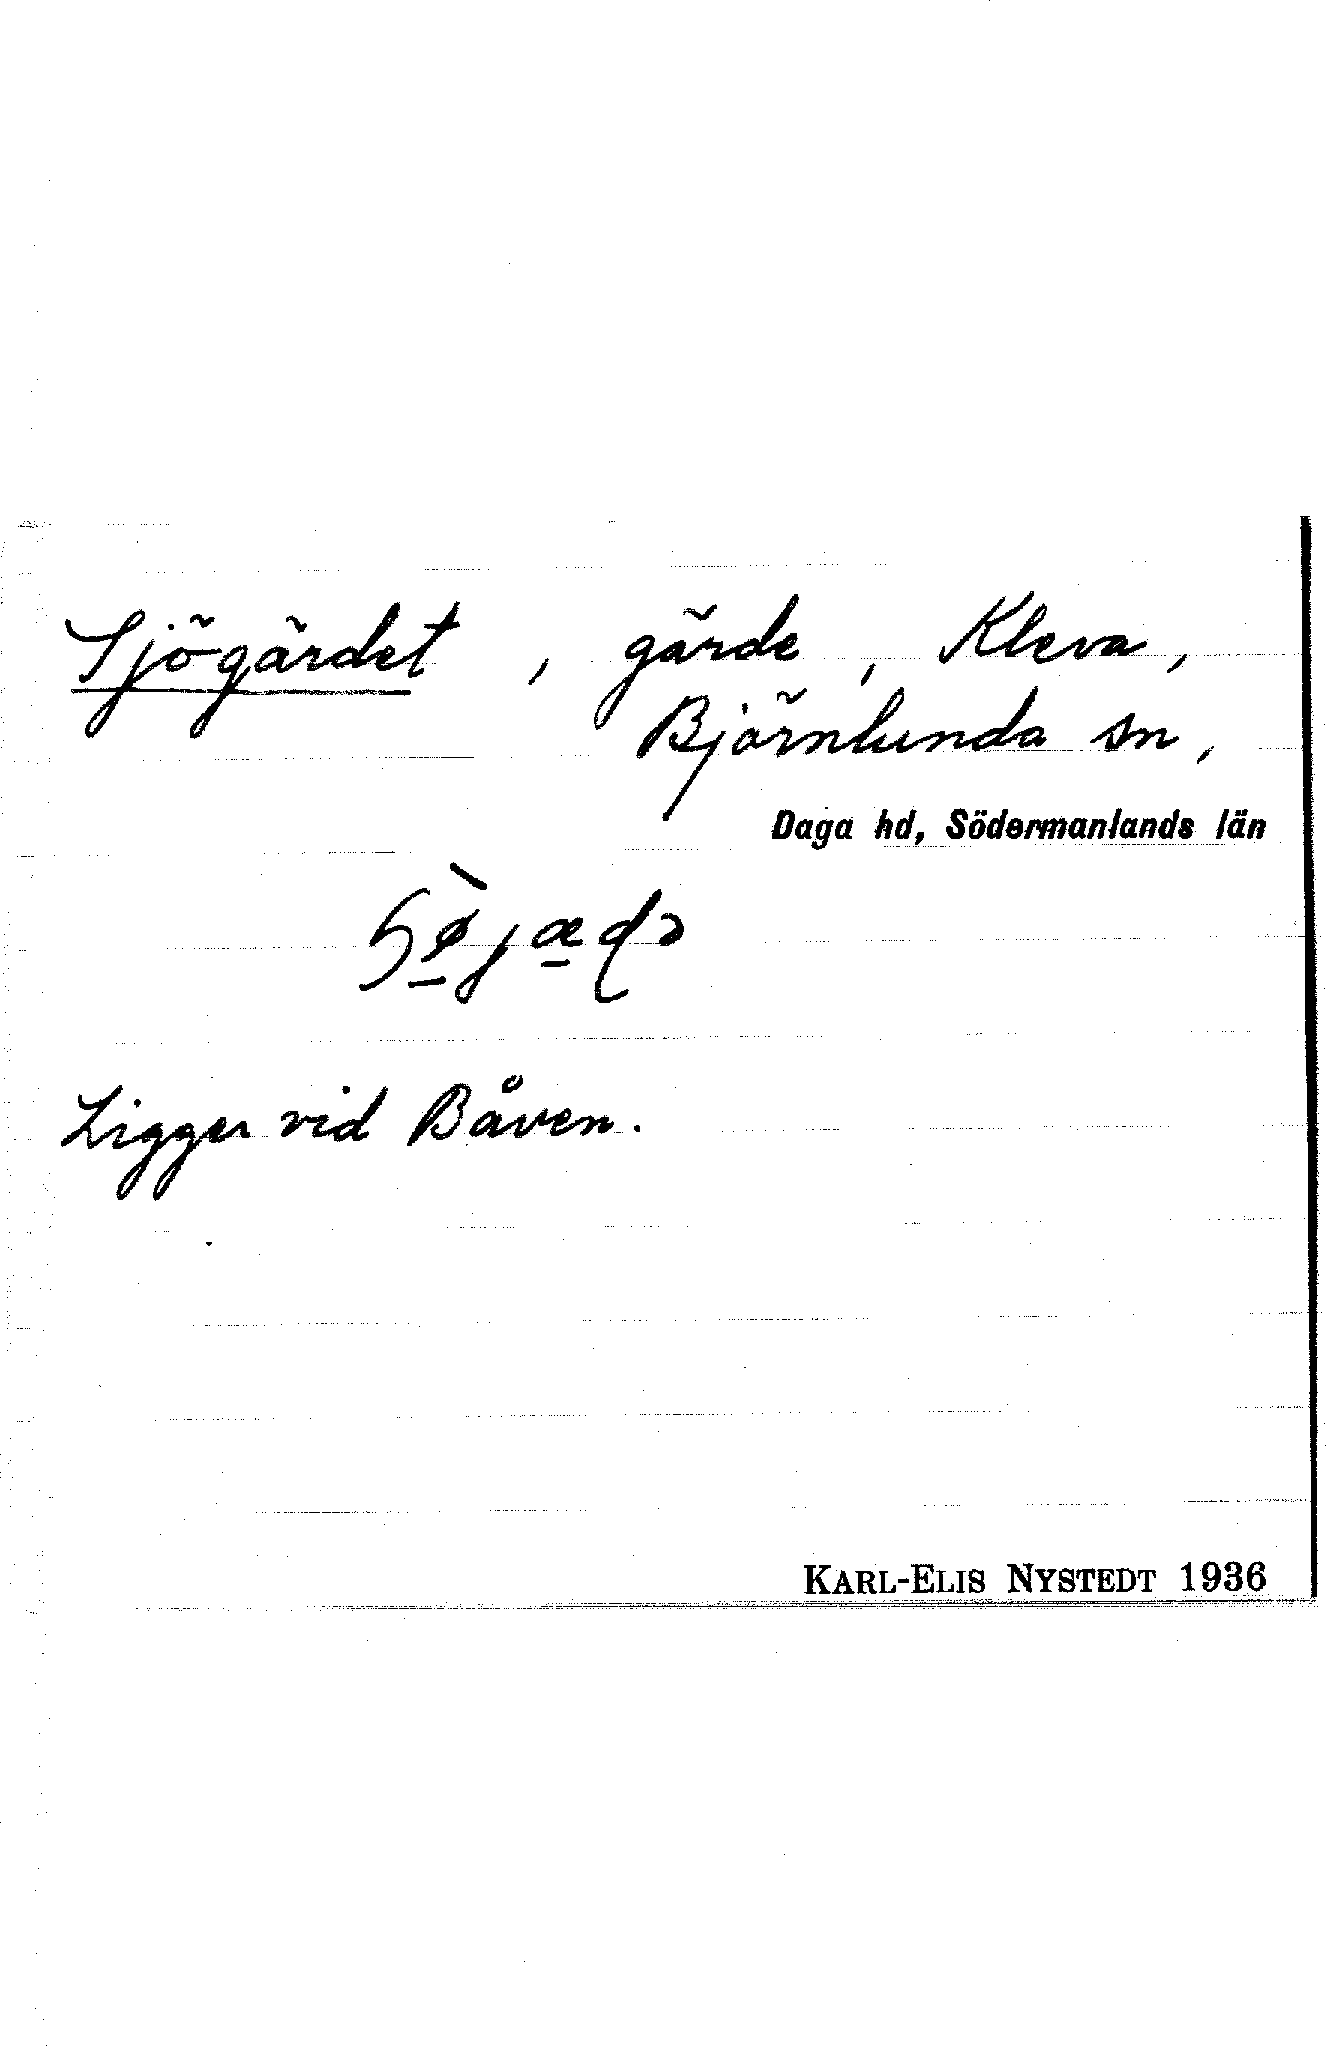 Sjögärdet, gärde, Kleva,
Björnlunda sn,
Daga hd, Södermanlands län
Ligger vid Båven.
KARL-ELIS NYSTEDT 1936